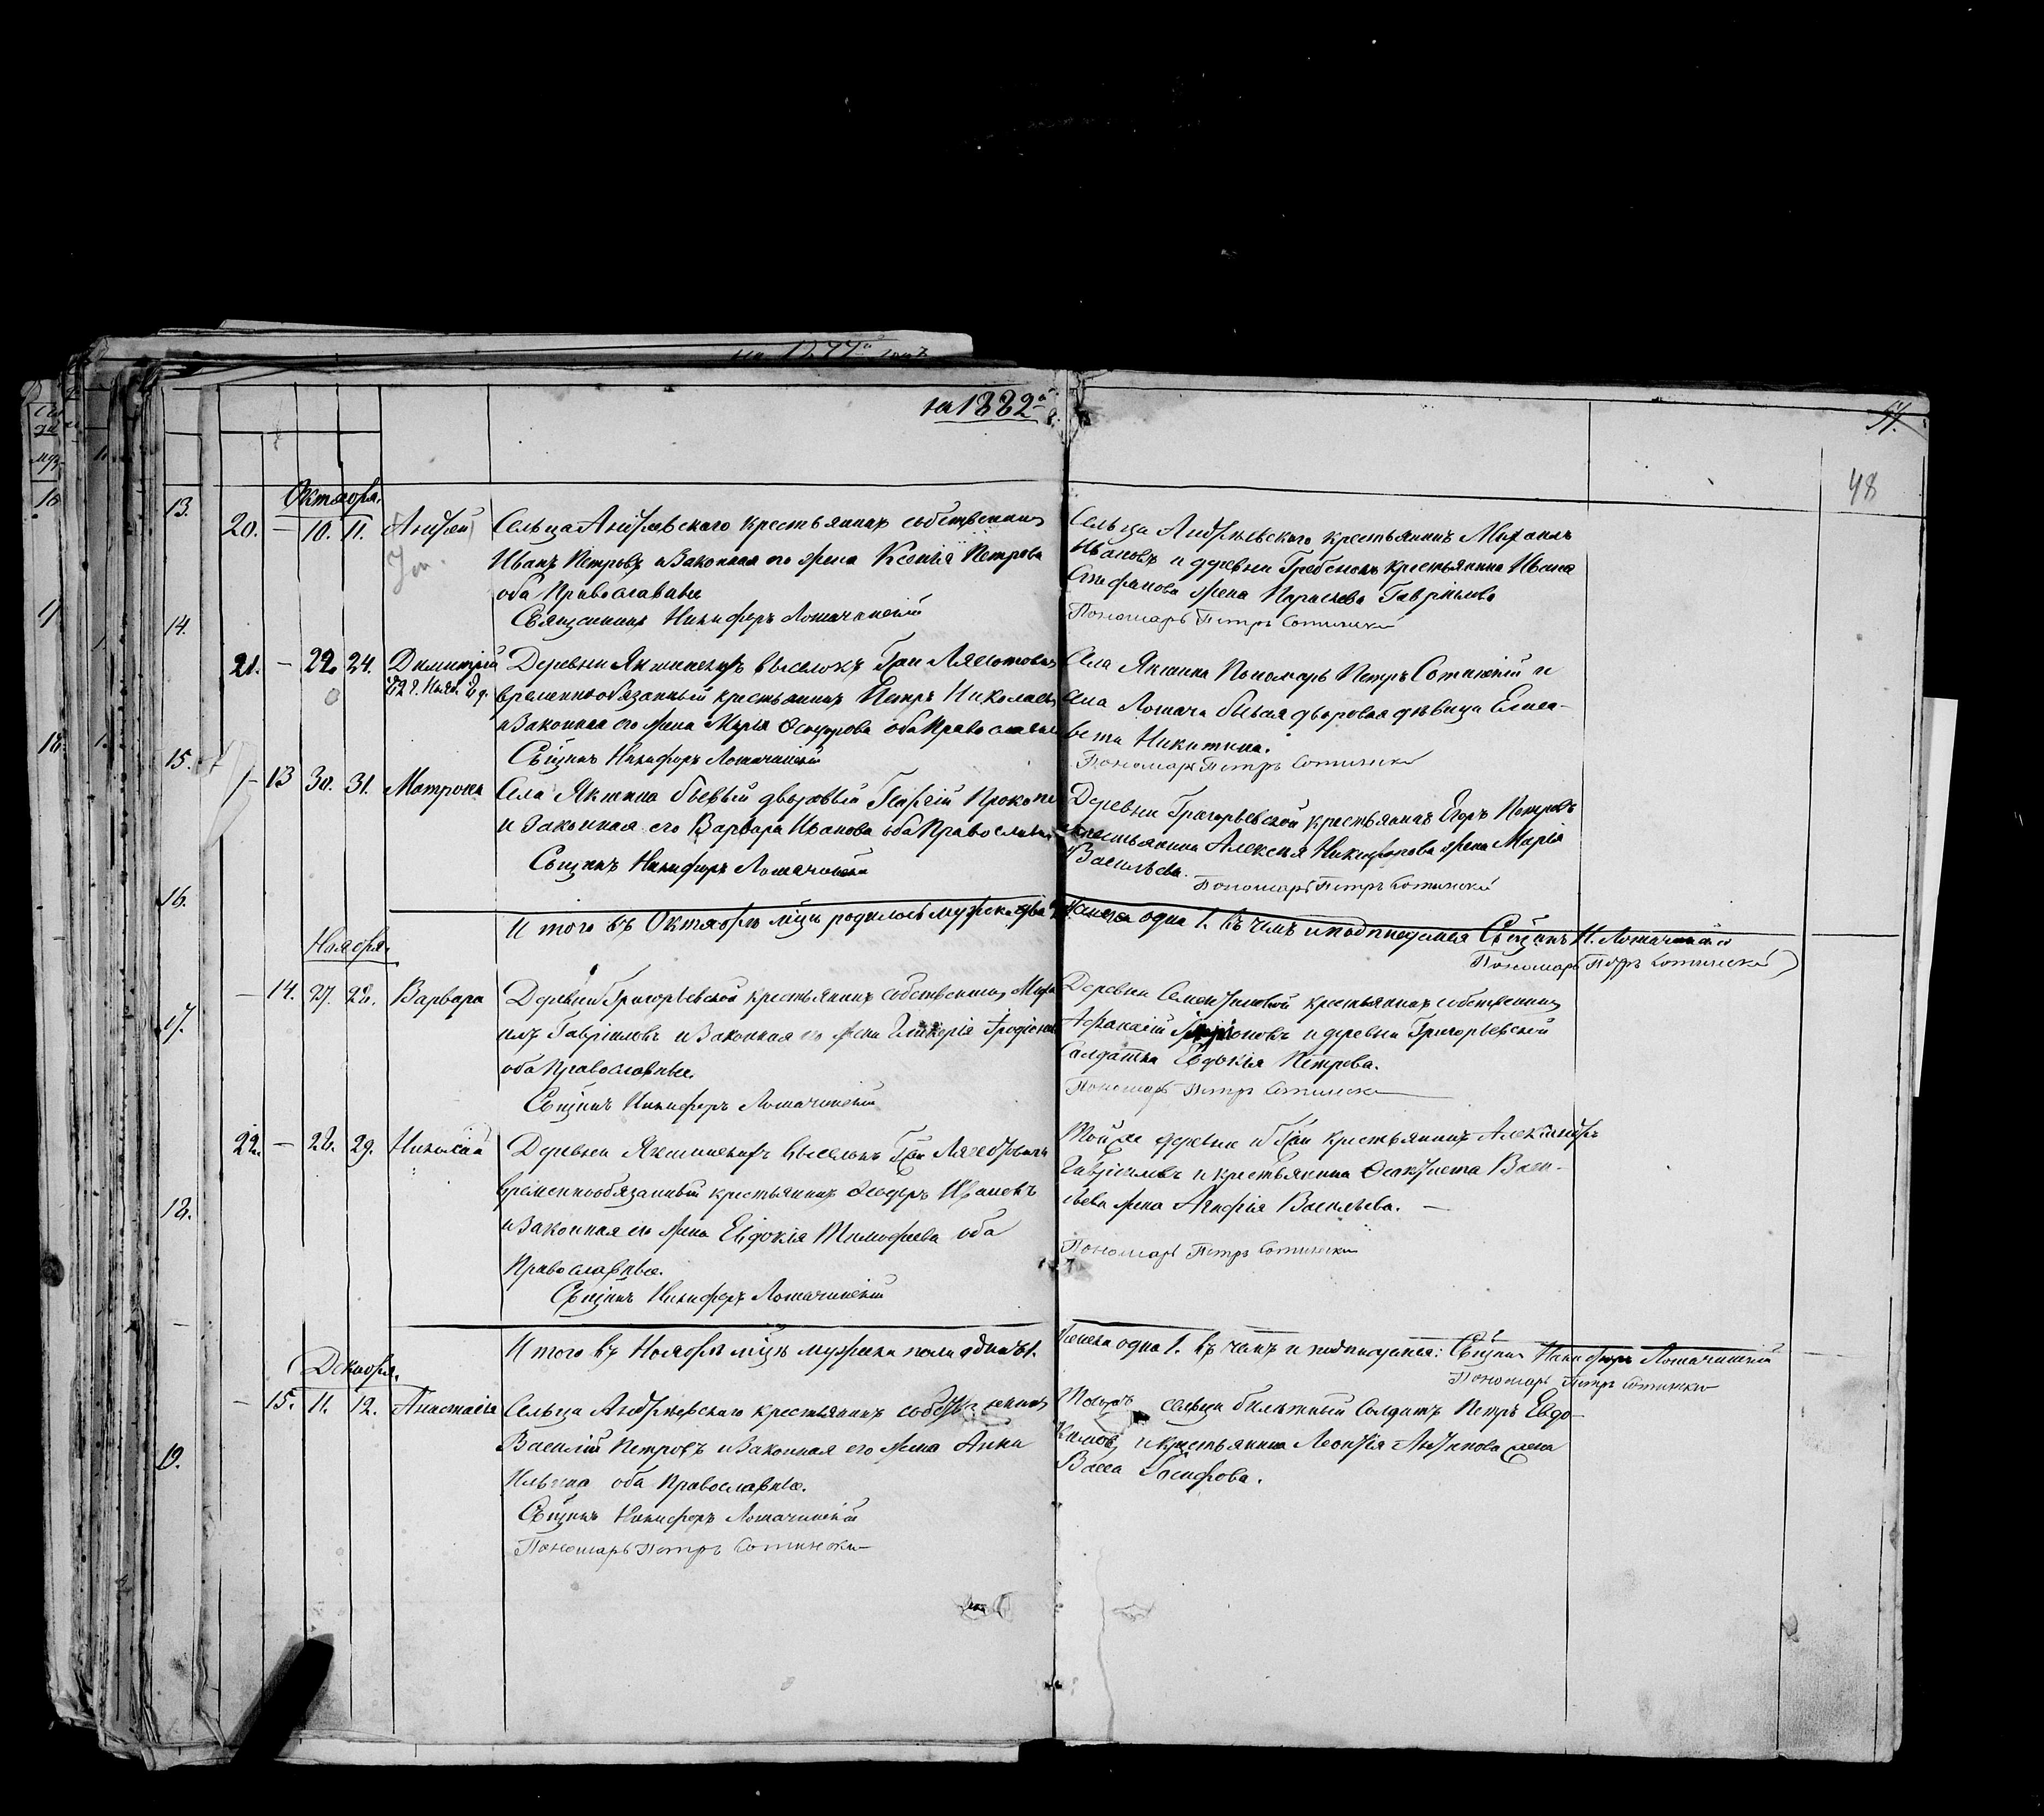 на 1882й г.
57.
48
Октября.
20. — 10. 11. Андрей Сельца Андреевскаго крестьянинъ собственникъ
Иванъ Петровъ и Законная его жена Ксенія Петрова
оба Православные
Священникъ Никифоръ Ломачинскій
Сельца Андреевскаго крестьянинъ Михаилъ
Ивановъ и деревни крестьянина Ивана
Стефанова жена Параскева Гавріилова
Пономарь Петръ Сотинскій
21. — 22. 24. Димитрій Деревни Якшинскихъ выселокъ
временнообязанный крестьянинъ Петръ Николаевъ
и Законная его жена Марія Ѳеодорова оба Православные
Сващнкъ Никифоръ Ломачинскій
Села Якшина Пономарь Петръ Сотинскій и
села бывшая дворовая дѣвица Елиса-
вета Никитина.
Пономарь Петръ Сотинскій
— 13 30. 31. Матрона Села Якшина бывый дворовый Георгій
и Законная его Варвара Иванова оба Православные
Сващнкъ Никифоръ Ломачинскій
Деревни Григорьевской крестьянинъ Егоръ Петровъ
крестьянина Алексѣя Никифорова жена Марія
Васильева.
Пономарь Петръ Сотинскій
Итого въ Октябрѣ мцѣ родилось мужска два
женска одна 1. въ чемъ и подписуемся Сващнкъ Н. Ломачинскій
Пономарь Петръ Сотинскій
Ноября.
— 14. 27. 28. Варвара Деревни Григорьевской крестьянинъ собственникъ Миха
илъ Гавріиловъ и Законная его жена Гликерія
оба Православные.
Сващнкъ Никифоръ Ломачинскій
Деревни крестьянинъ собственникъ
Афанасій и деревни Григорьевской
Солдатка Евдокія Петрова.
Пономарь Петръ Сотинскій
22. — 28. 29. Николай Деревни Якшинскихъ выселокъ
временнообязанный крестьянинъ Ѳеодоръ Ивановъ
и Законная его жена Евдокія Тимофеева оба
Православные.
Сващнкъ Никифоръ Ломачинскій
Той же деревни крестьянинъ Александръ
Гавріиловъ и крестьянина Васи-
льева жена Агафія Васильева. —
Пономарь Петръ Сотинскій
Итого въ Ноябрѣ мцѣ мужска пола одинъ 1.
женска одна 1. въ чемъ и подписуемся: Сващнкъ Никифоръ Ломачинскій
Пономарь Петръ Сотинскій
Декабря.
— 15. 11. 12. Анастасія Сельца Андреевскаго крестьянинъ собственникъ
Василій Петровъ и Законная его жена Анна
Ильина оба Православные.
Сващнкъ Никифоръ Ломачинскій
Пономарь Петръ Сотинскій
Тогожъ сельца билетный Солдатъ Петръ Евдо-
кимовъ и крестьянина Леонтія Антипова жена
Васса Іосифова.
13.
14.
15.
16.
17.
18.
19.